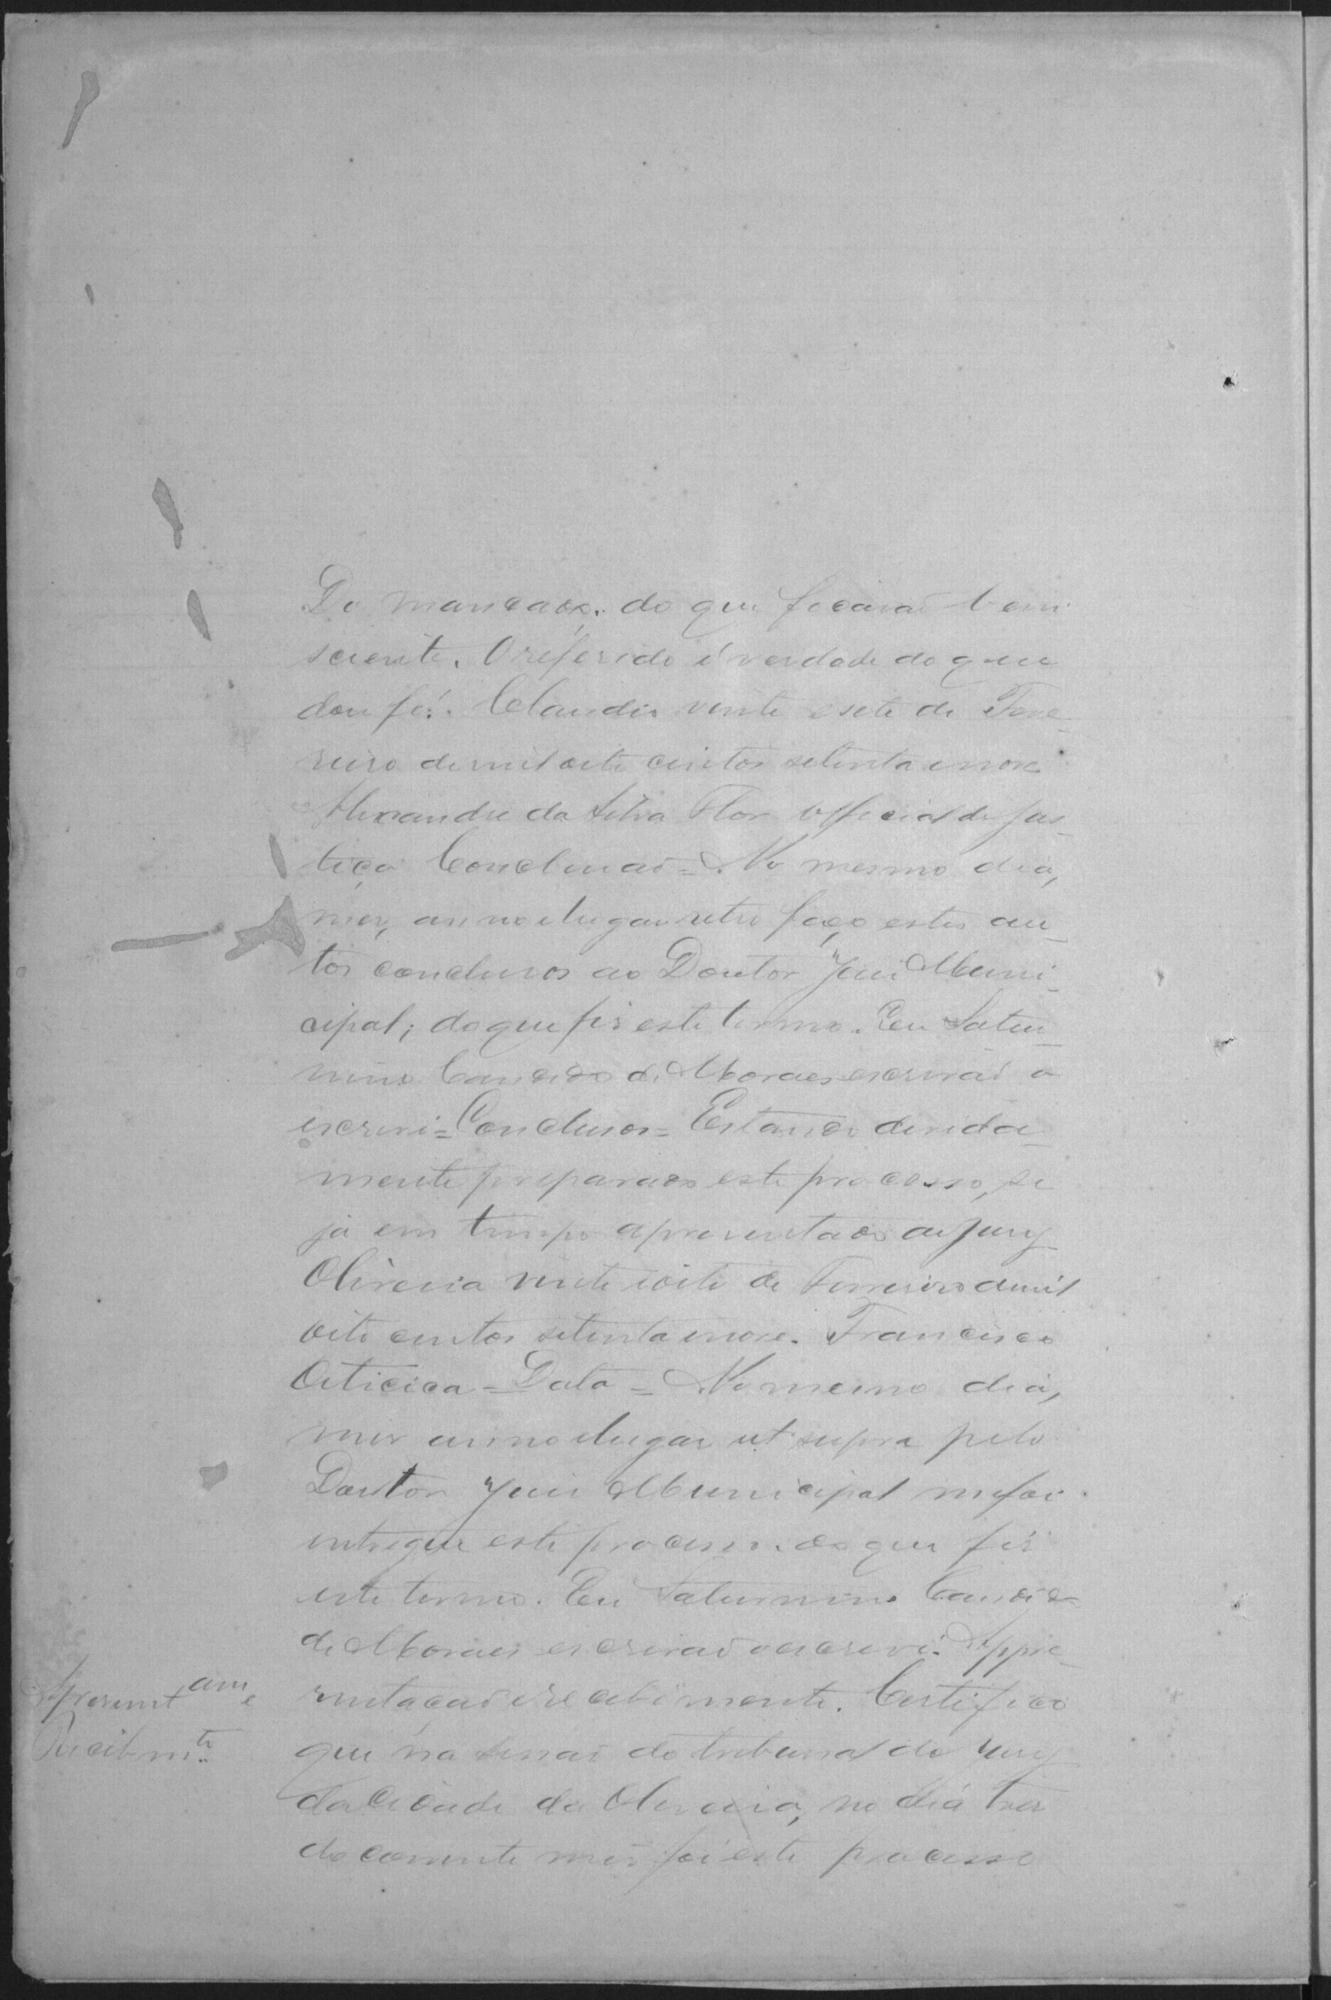 Do mandado; do que ficarão bem
sciente. O referido é verdade do que
dou fé. Claudio vinte e sete de Feve-
reiro de mil oito centos setenta e nove
Alexandre da Silva Flor official de Jus-
tiça Conclusão = No mesmo dia,
mez, anno e lugar retro faço estes au-
tos conclusos ao Doutor Juis Muni-
cipal; do que fis este termo. Eu Satur-
nino Candido de Moraes escrivão o
escrevi = Conclusos = Estando devida-
mente preparado este processo, se
ja em tempo apresentado ao Jury
Olivença vinte e oito de Fevereiro de mil
oito centos setenta e nove. Francisco
Oiticica = Data = No mesmo dia,
mez anno e lugar ut supra pelo
Doutor Juis Municipal me foi
entregue este processo. do que fis
este termo. Eu Saturnino Candido
de Moraes escrivão o escrevi. Appre-
sentação e recebimento. Certifico
Apresentam e
Recibmto
que na sessão do tribunal do Jury
da Cidade da Olivença, no dia tres
do corrente mes foi este processo